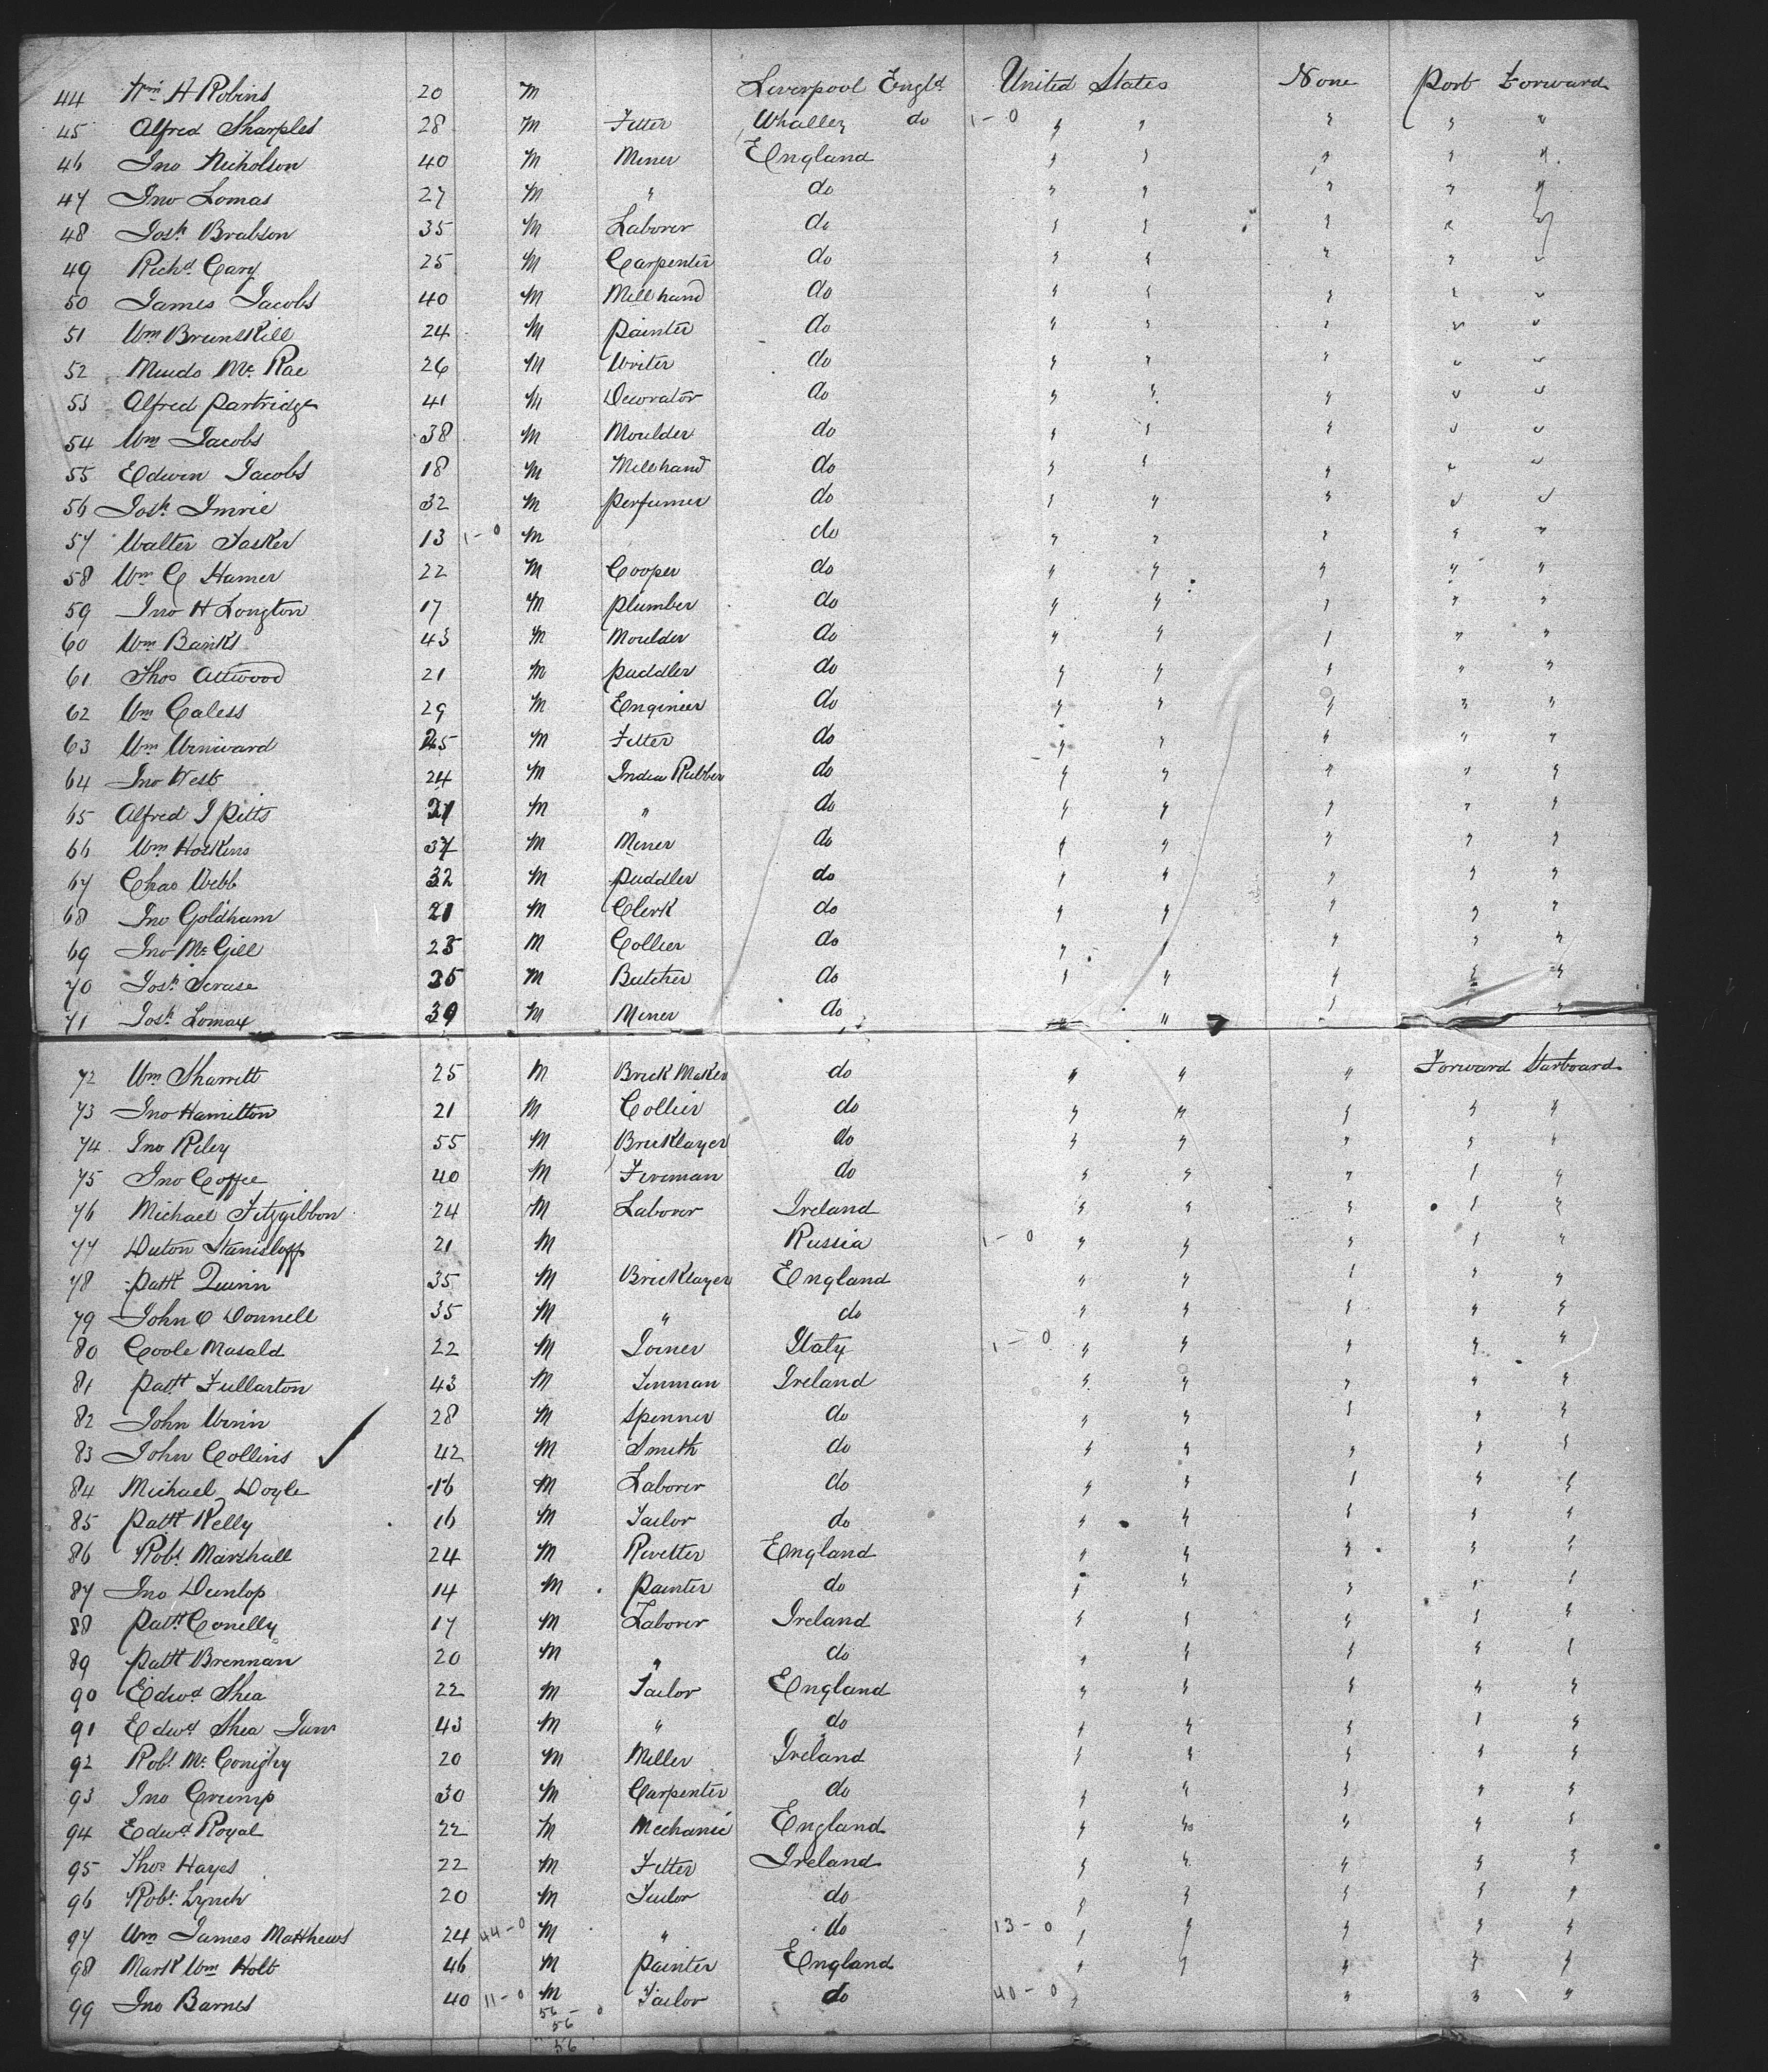 44 Wm H Robins 20 M Liverpool Engld United States None Port Forward
45 Alfred Sharples 28 M Fitter Whalley do 1-0 " " " " "
46 Jno Nicholson 40 M Miner England " " " " "
47 Jno Lomas 27 M " do " " " " "
48 Josh Brabson 35 M Laborer do " " " " "
49 Richd Cary 25 M Carpenter do " " " " "
50 James Jacobs 40 M Millhand do " " " " "
51 Wm Brunskill 24 M Painter do " " " " "
52 Murdo McRae 26 M Writer do " " " " "
53 Alfred Partridge 41 M Decorator do " " " " "
54 Wm Jacobs 38 M Moulder do " " " " "
55 Edwin Jacobs 18 M Millhand do " " " " "
56 Josh Imrie 32 M Perfumer do " " " " "
57 Walter Tasker 13 1-0 M do " " " " "
58 Wm C Hamer 22 M Cooper do " " " " "
59 Jno H Longton 17 M Plumber do " " " " "
60 Wm Banks 43 M Moulder do " " " " "
61 Thos Attwood 21 M Puddler do " " " " "
62 Wm Caless 29 M Engineer do " " " " "
63 Wm Winward 25 M Fitter do " " " " "
64 Jno West 24 M India Rubber do " " " " "
65 Alfred J Pitts M " do " " " " "
66 Wm Hoskins 37 M Miner do " " " " "
67 Chas Webb 32 M Puddler do " " " " "
68 Jno Goldham 21 M Clerk do " " " " "
69 Jno McGill 23 M Collier do " " " " "
70 Josh 35 M Butcher do " " " " "
71 Josh Lomax 39 M Miner do " " " "
72 Wm Sharritt 25 M Brick Maker do " " " Forward Starboard
73 Jno Hamilton 21 M Collier do " " " " "
74 Jno Riley 55 M Bricklayer do " " " " "
75 Jno Coffee 40 M Fireman do " " " " "
76 Michael Fitzgibbon 24 M Laborer Ireland " " " " "
77 Stanisloff 21 M Russia 1-0 " " " " "
78 Patk Quinn 35 M Bricklayer England " " " " "
79 John O Donnell 35 M " do " " " " "
80 Coole Masald 22 M Joiner Italy 1-0 " " " " "
81 Patk Fullarton 43 M Tinman Ireland " " " " "
82 John Winn 28 M Spinner do " " " " "
83 John Collins ✓ 42 M Smith do " " " " "
84 Michael Doyle 16 M Laborer do " " " " "
85 Patk Kelly 16 M Tailor do " " " " "
86 Robt Marshall 24 M Rivetter England " " " " "
87 Jno Dunlop 14 M Painter do " " " " "
88 Patk Conelly 17 M Laborer Ireland " " " " "
89 Patk Brennan 20 M " do " " " " "
90 Edwd Shea 22 M Tailor England " " " " "
91 Edwd Shea Junr 43 M " do " " " " "
92 Robt McConighy 20 M Miller Ireland " " " " "
93 Jno Crump 30 M Carpenter do " " " " "
94 Edwd Royal 22 M Mechanic England " " " " "
95 Thos Hayes 22 M Fitter Ireland " " " " "
96 Robt Lynch 20 M Tailor do " " " " "
97 Wm James Matthews 24 44-0 M " do 13-0 " " " " "
98 Mark Wm Holt 46 M Painter England " " " " "
99 Jno Barnes 40 11-0 M Tailor do 40-0 " " " "
56-0
56
56